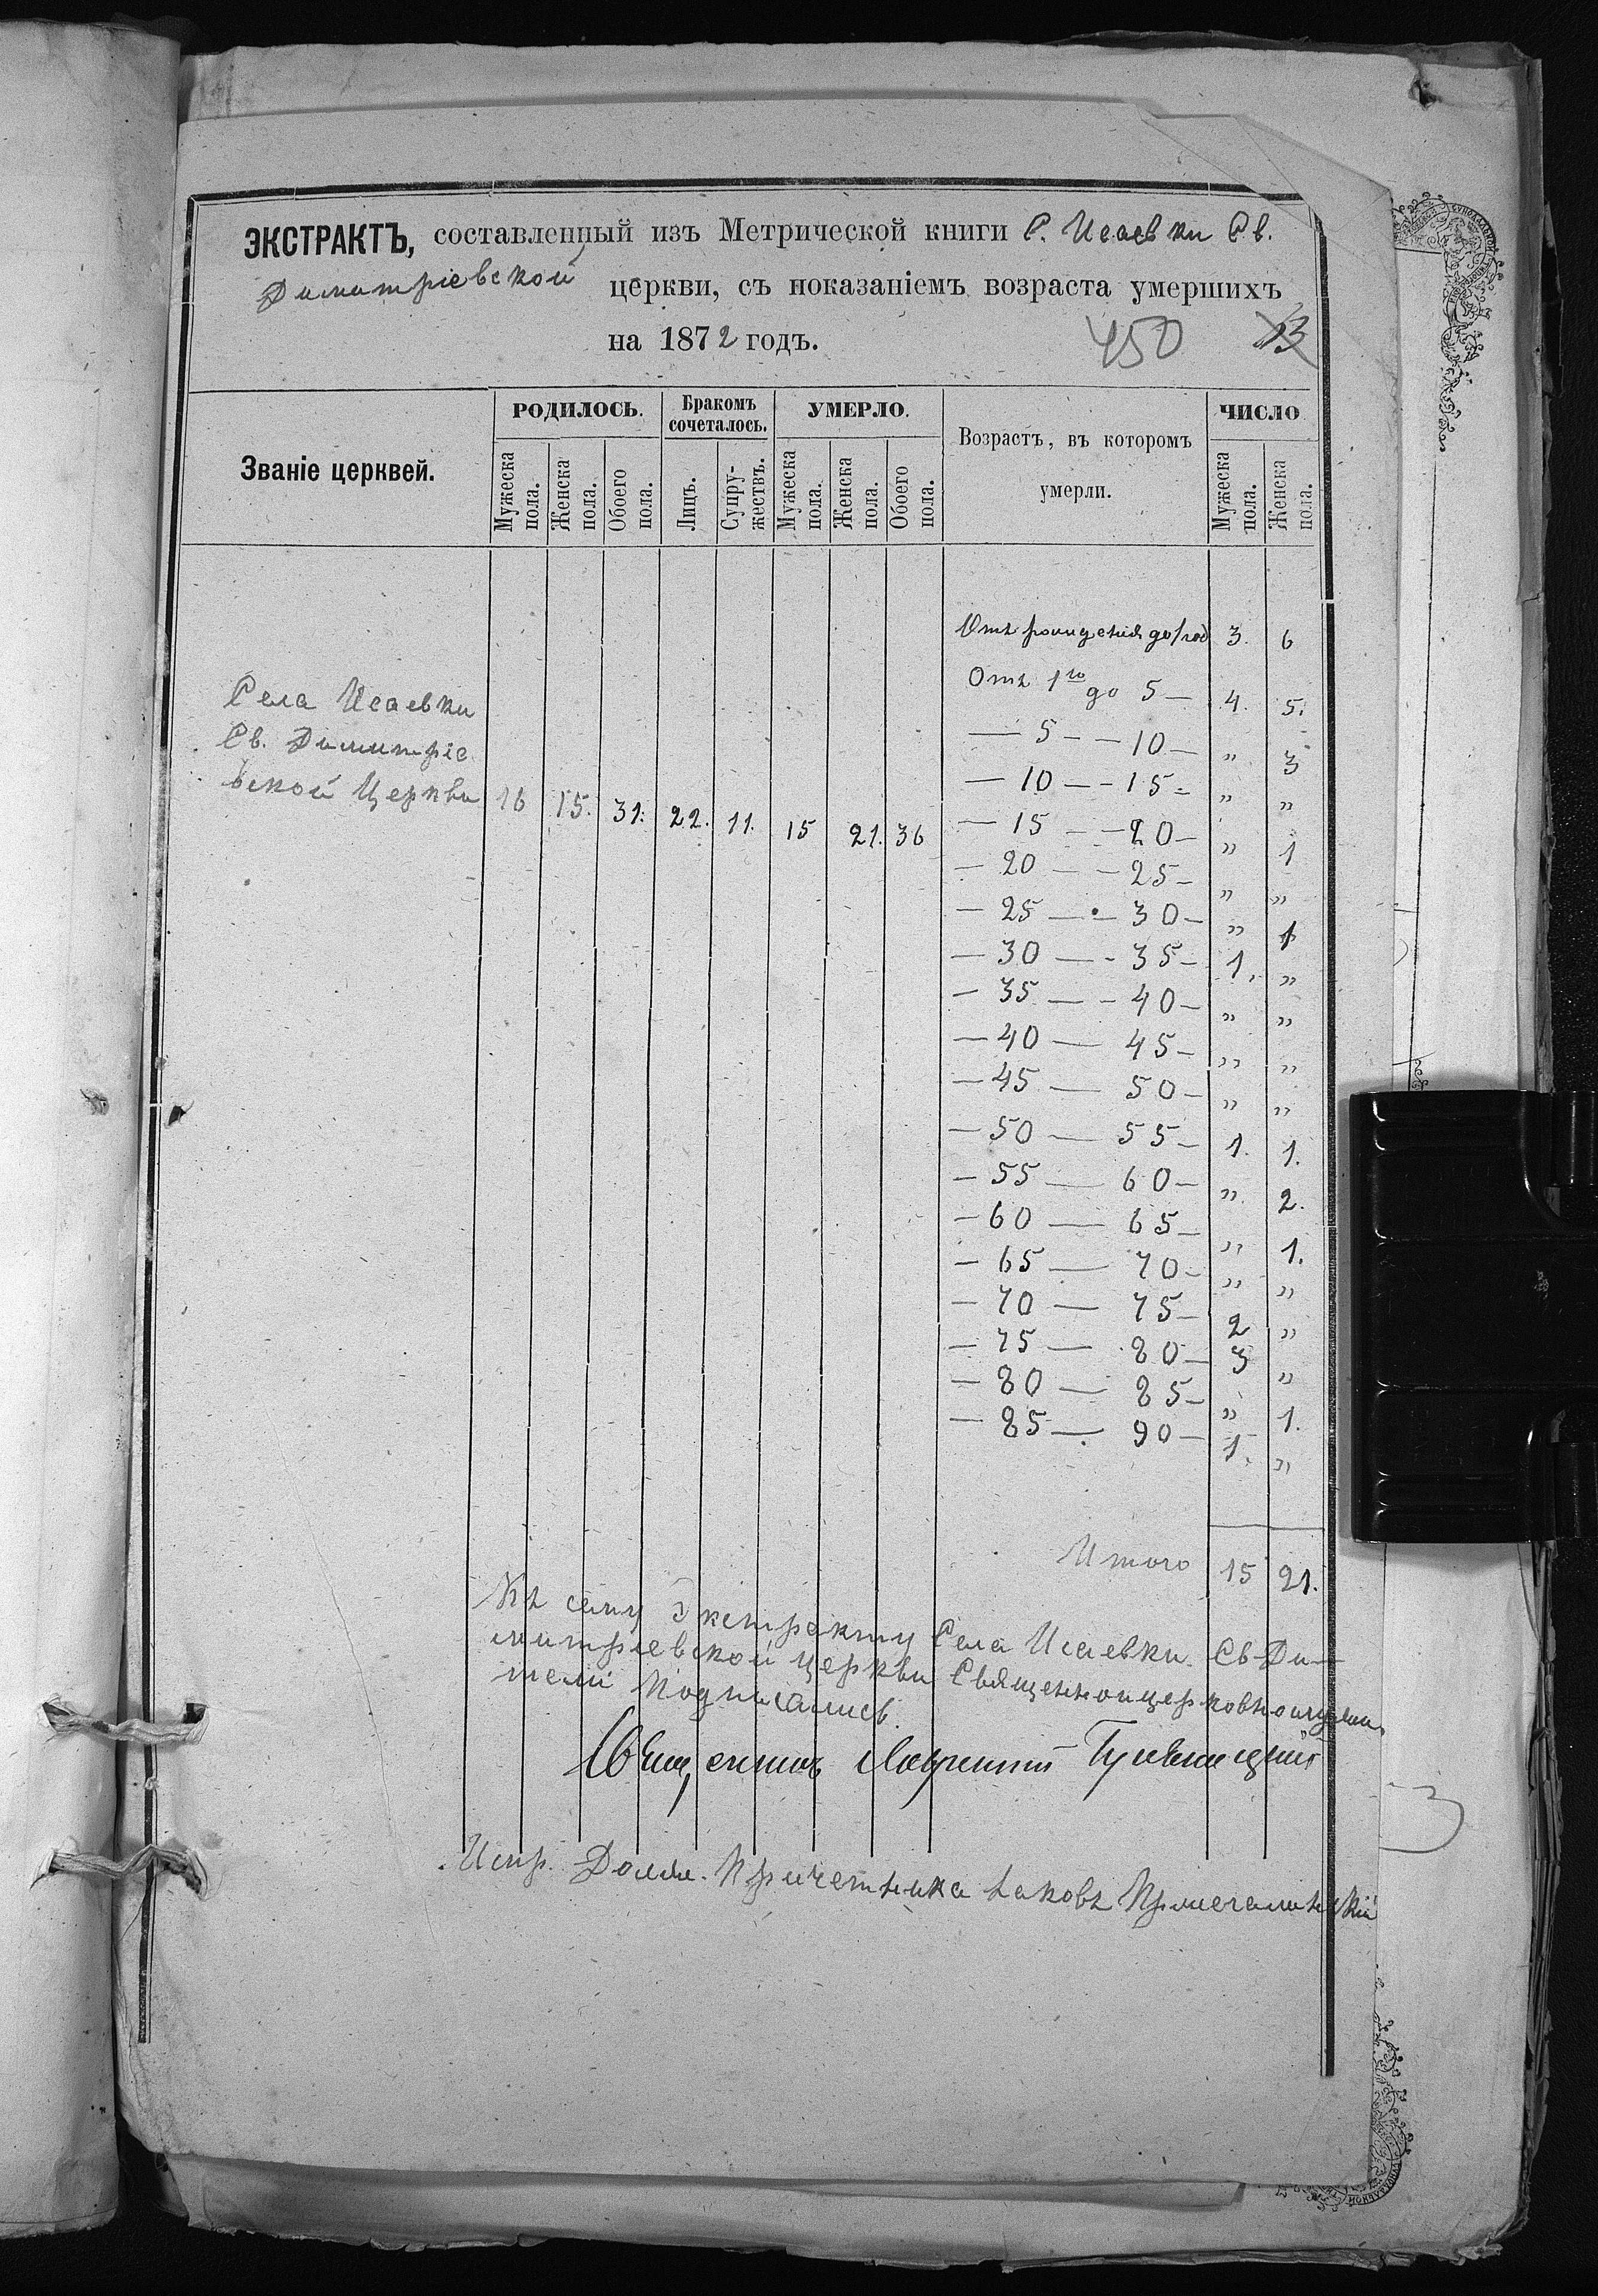 ЭКСТРАКТЪ, составленный изъ Метрической книги С. Исаевки Св.
Димитріевской церкви, съ показаніемъ возраста умершихъ
на 1872 годъ.
450 13
Званіе церквей.
РОДИЛОСЬ.
Мужеска пола.
Женска пола.
Обоего пола.
Бракомъ сочеталось.
Лицъ.
Супружествъ.
УМЕРЛО.
Мужеска пола.
Женска пола.
Обоего пола.
Возрастъ, въ которомъ
умерли.
ЧИСЛО
Мужеска пола.
Женска пола.
Села Исаевки
Св. Димитріе
вской Церкви 16 15. 31. 22. 11. 15 21. 36
Отъ рожденія до 1 год 3. 6
Отъ 1го до 5 — 4. 5.
— 5 — — 10 — „ 3
— 10 — — 15 — „ „
— 15 — — 20 — „ 1
— 20 — — 25 — „ „
— 25 — — 30 — „ 1
— 30 — — 35 — 1. „
— 35 — — 40 — „ „
— 40 — 45 — „ „
— 45 — 50 — „ „
— 50 — 55 — 1. 1.
— 55 — 60 — „ 2.
— 60 — 65 — „ 1.
— 65 — 70 — „ „
— 70 — 75 — 2 „
— 75 — 80 — 3 „
— 80 — 85 — „ 1.
— 85 — 90 — 1. „
Итого 15 21.
Къ сему Экстракту Села Исаевки Св Ди—
митріевской церкви Священноцерковнослужи
тели Подписались.
Священникъ Лаврентій
Испр. Долж. Причетника Іаковъ